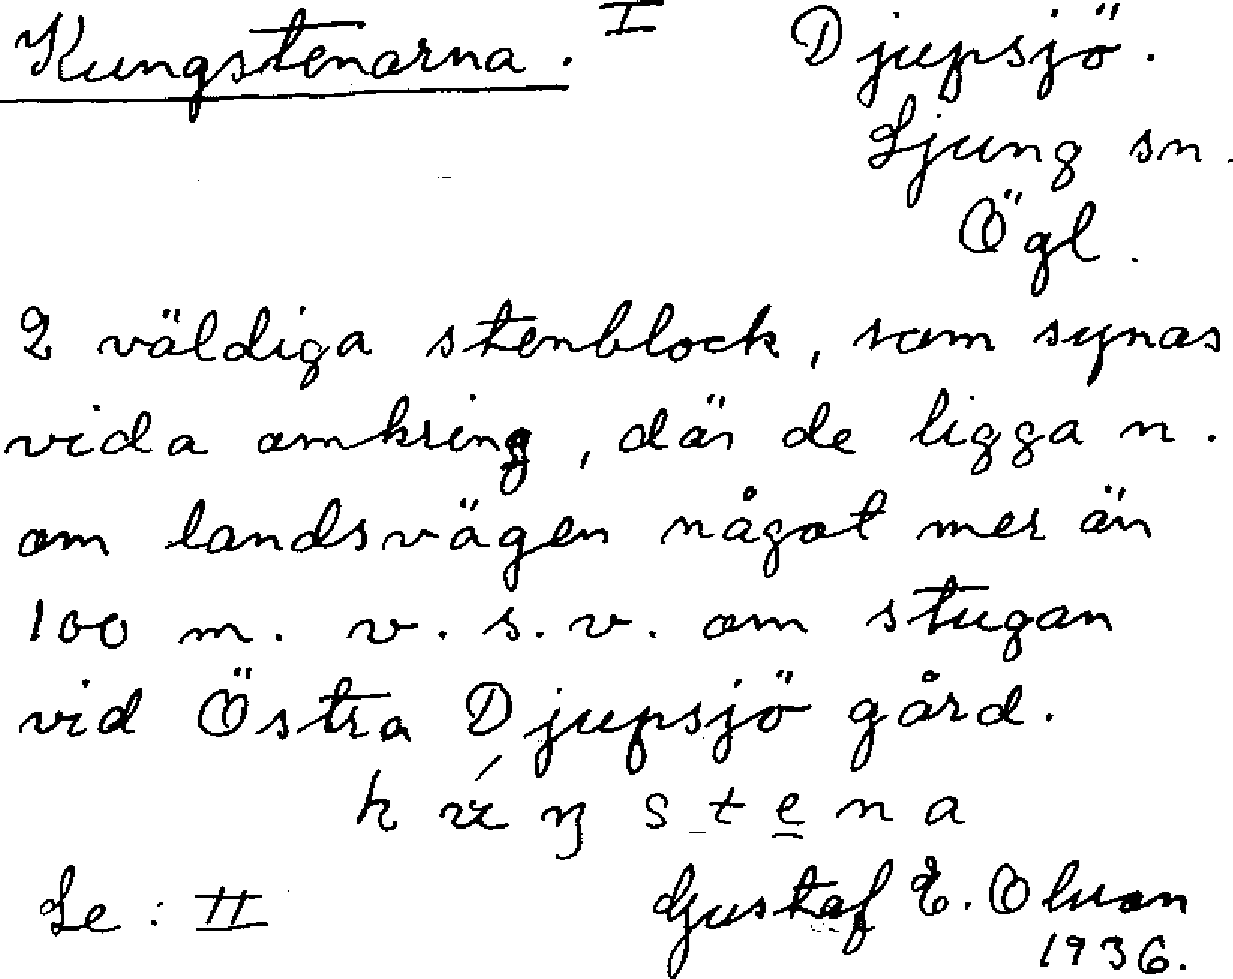 Kungstenarna. I Djupsjö.
Ljung sn.
Ögl.
2 väldiga stenblock, som synas
vida omkring, där de ligga n.
om landsvägen något mer än
100 m. v. s. v. om stugan
vid Östra Djupsjö gård.
s t e n a
Se: II Gustaf E. Olsson
1936.